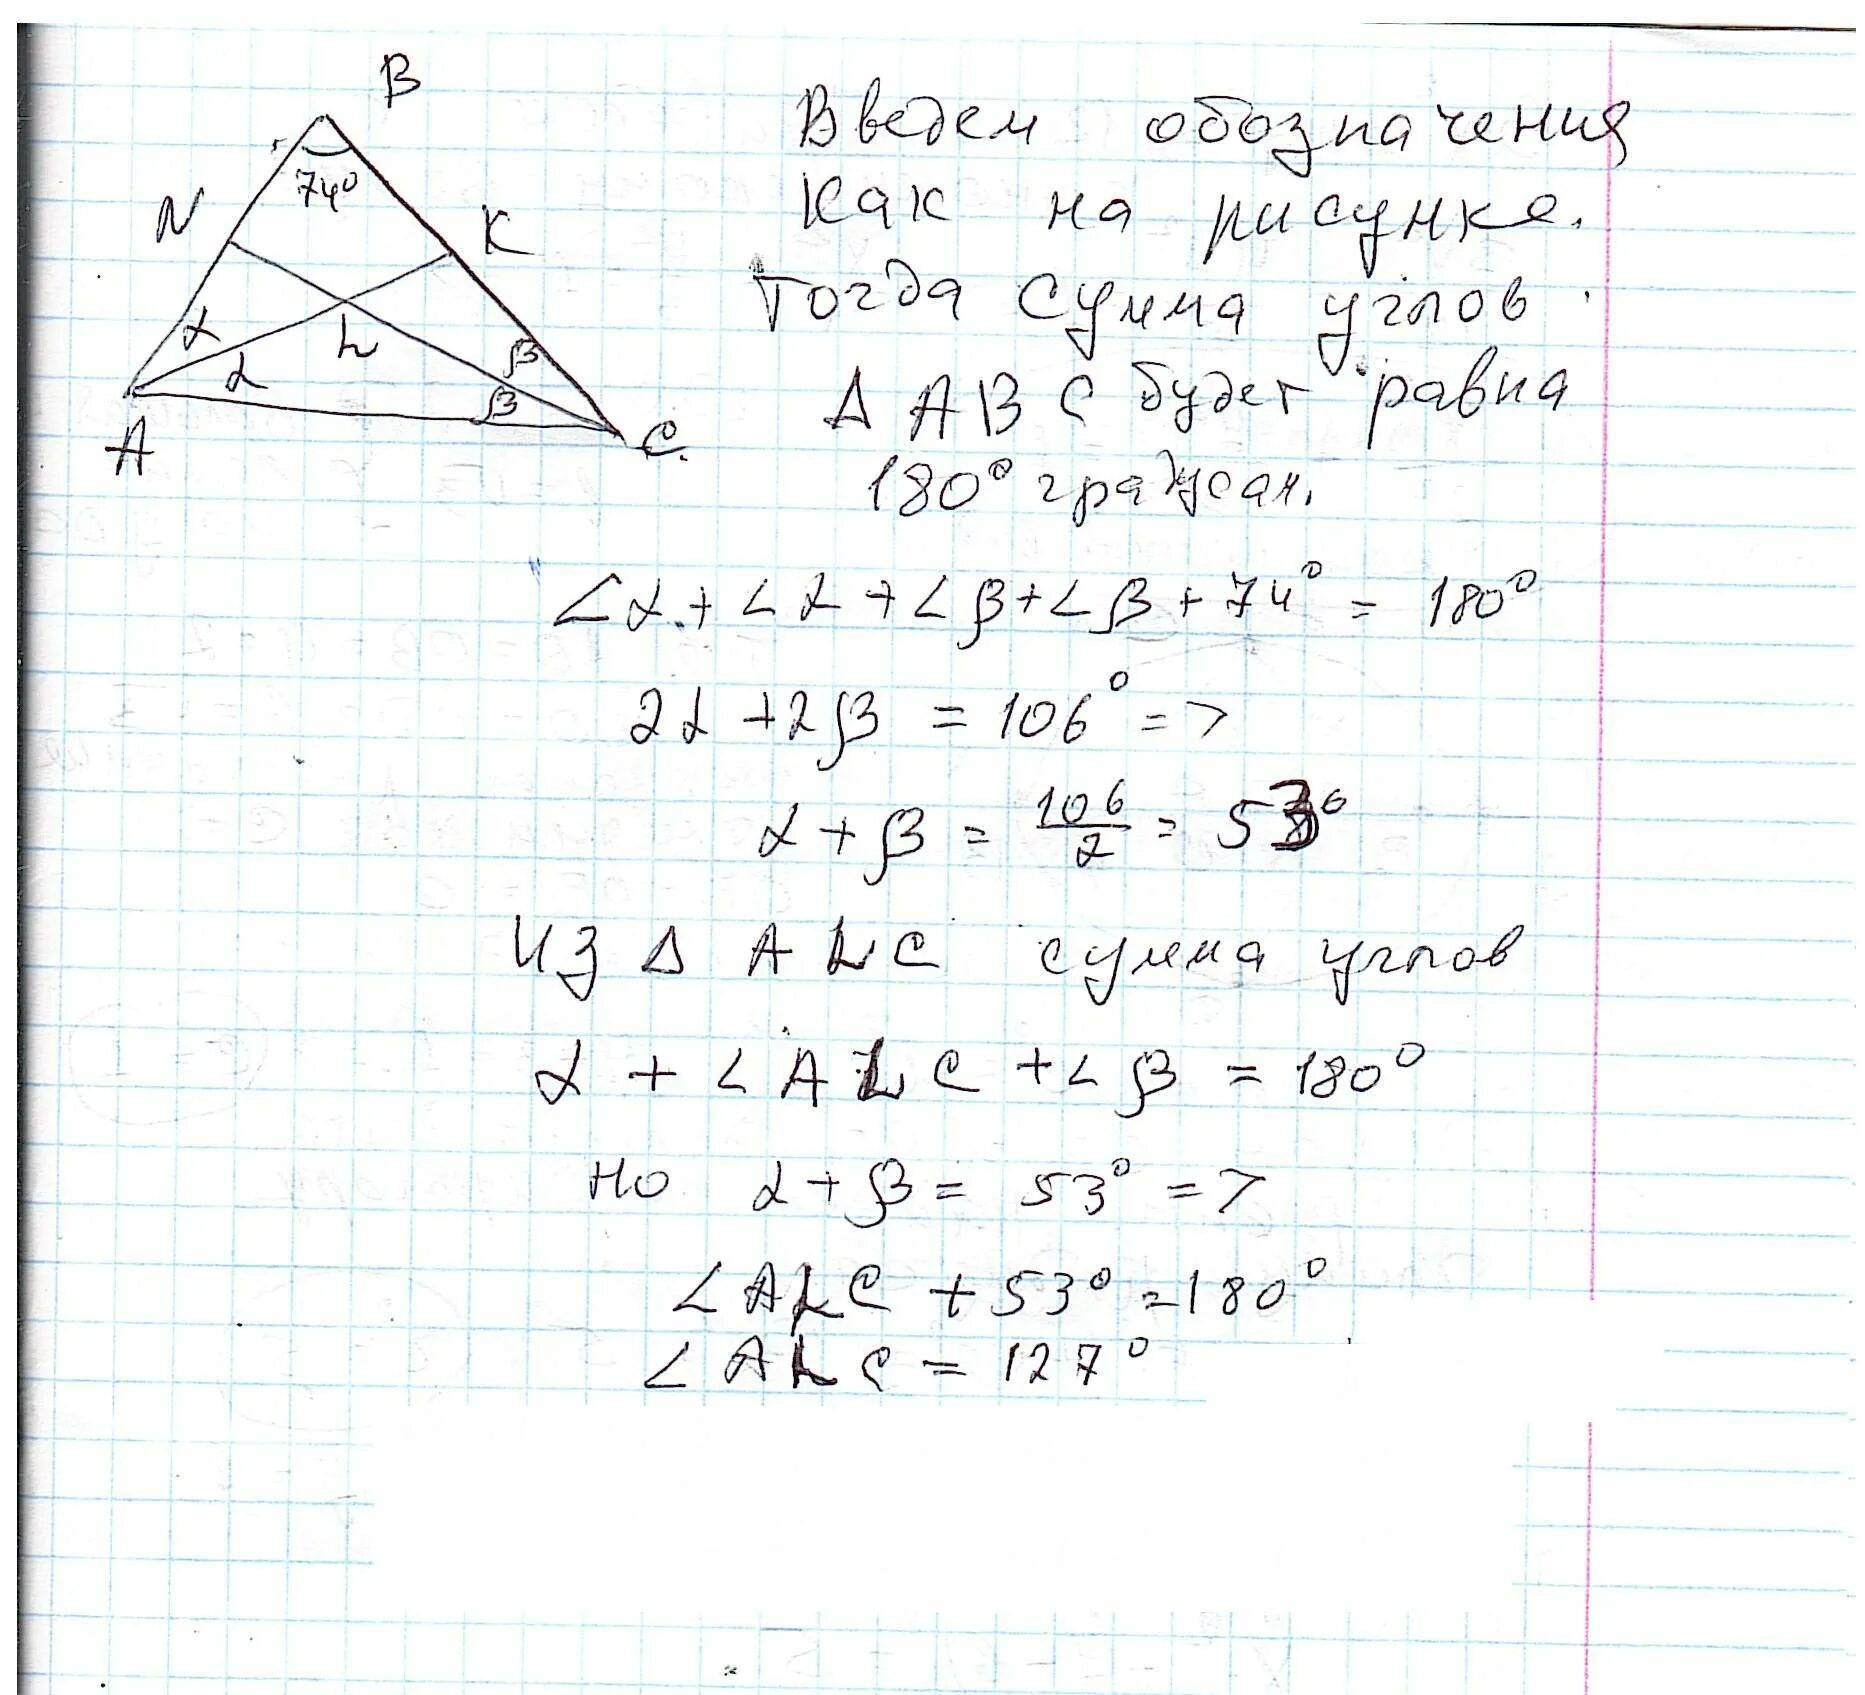 B
74°
N
K
α
L
β
α
β
A
C.
Введем обозначения
как на рисунке.
Тогда сумма углов
Δ ABC будет равна
180°
∠α + ∠α + ∠β + ∠β + 74° = 180°
2α + 2β = 106° =>
α + β = 106/2 = 53°
Из Δ ALC сумма углов
α + ∠ALC + ∠β = 180°
но α + β = 53° =>
∠ALC + 53° = 180°
∠ALC = 127°